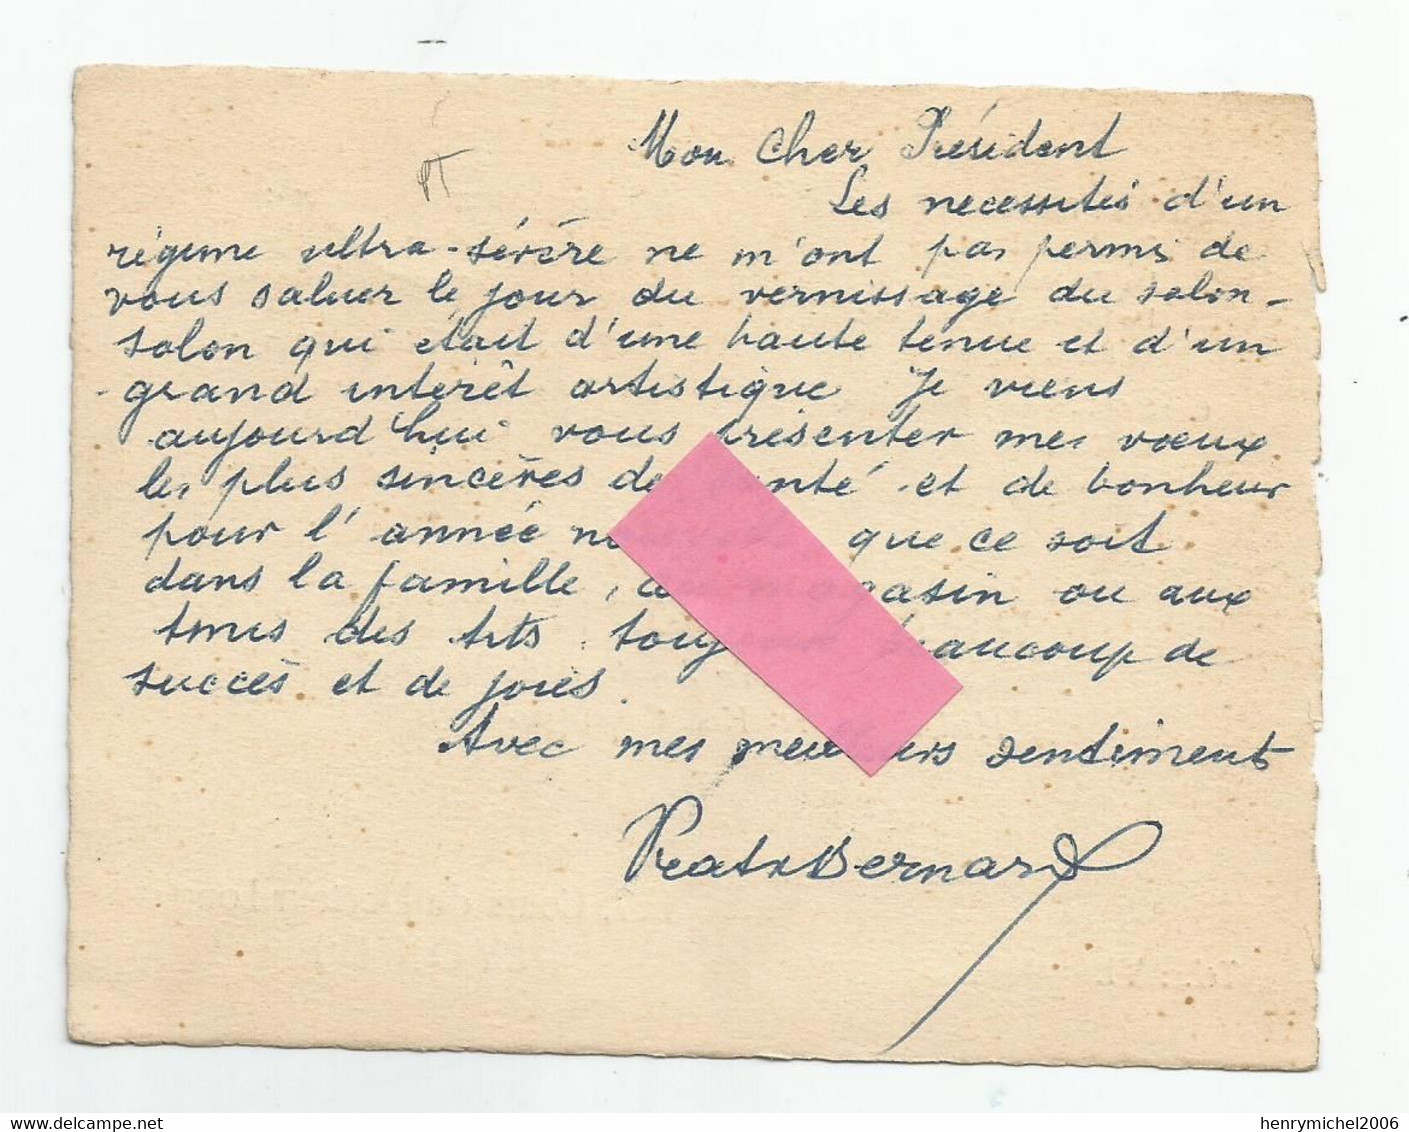 Mon Cher Président
PT
Les necessités d'un
régime ultra-sévère ne m'ont pas permis de
vous saluer le jour du vernissage du salon-
salon qui était d'une haute tenue et d'un
grand intérêt artistique Je viens
aujourd'hui vous présenter mes vœux
les plus sincères de santé et de bonheur
pour l'année que ce soit
dans la famille, ou aux
des Arts. beaucoup de
succès et de joies.
Avec mes meilleurs sentiments
Bernard
henrymichel2006